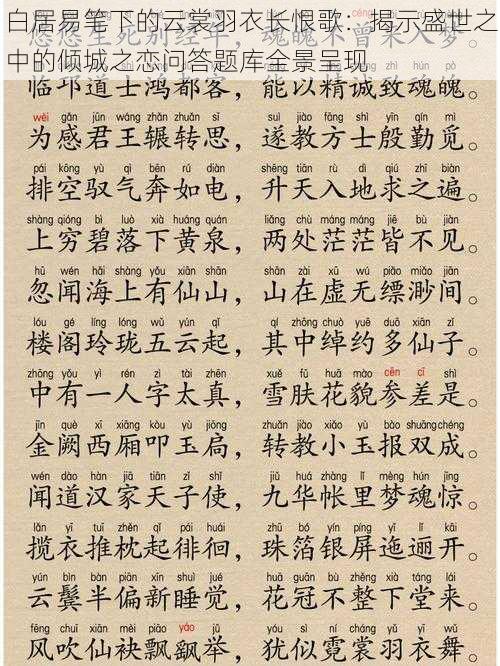 白居易笔下的云裳羽衣长恨歌：揭示盛世之
中的倾城之恋问答题库全景呈现
悠悠生死别经年，魂魄不曾来入梦。
临邛道士鸿都客，能以精诚致魂魄。
wèi gǎn jūn wáng zhǎn zhuǎn sī suì jiào fāng shì yīn qín mì
为感君王辗转思，遂教方士殷勤觅。
pái kōng yù qì bēn rú diàn shēng tiān rù dì qiú zhī biàn
排空驭气奔如电，升天入地求之遍。
shàng qióng bì luò xià huáng quán liǎng chù máng máng jiē bù jiàn
上穷碧落下黄泉，两处茫茫皆不见。
hū wén hǎi shàng yǒu xiān shān shān zài xū wú piāo miǎo jiān
忽闻海上有仙山，山在虚无缥渺间。
lóu gé líng lóng wǔ yún qǐ qí zhōng chuò yuē duō xiān zǐ
楼阁玲珑五云起，其中绰约多仙子。
zhōng yǒu yī rén zì tài zhēn xuě fū huā mào cēn cī shì
中有一人字太真，雪肤花貌参差是。
jīn què xī xiāng kòu yù jiōng zhuǎn jiào xiǎo yù bào shuāng chéng
金阙西厢叩玉扃，转教小玉报双成。
wén dào hàn jiā tiān zǐ shǐ jiǔ huá zhàng lǐ mèng hún jīng
闻道汉家天子使，九华帐里梦魂惊。
lǎn yī tuī zhěn qǐ pái huái zhū bó yín píng yǐ lǐ kāi
揽衣推枕起徘徊，珠箔银屏迤逦开。
yún bìn bàn piān xīn shuì jué huā guān bù zhěng xià táng lái
云鬓半偏新睡觉，花冠不整下堂来。
fēng chuī xiān mèi piāo yáo jǔ yóu sì ní cháng yǔ yī wǔ
风吹仙袂飘飖举，犹似霓裳羽衣舞。